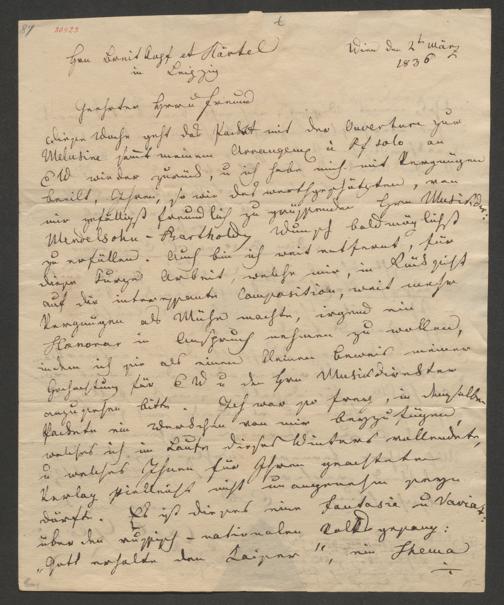 84
30923
Hrn Breitkopf et Härtel
in Leipzig
Wien den 2t März
1836
Geehrter Herr u Freund
Diese Woche geht das Packet mit der Ouverture zur
Melusine samt meinem Arrangemt à Pf solo an
E W wieder zurück, u ich habe mich mit Vergnügen
beeilt, Ihren, so wie des werthgeschätzten, von
mir gefälligst freundlich zu grüssenden Hrn Musikdir:
Mendelsohn-Bartholdy Wunsch baldmöglichst
zu erfüllen. Auch bin ich weit entfernt, für
diese kurze Arbeit, welche mir, in Rücksicht
auf die interessante Composition, weit mehr
Vergnügen als Mühe machte, irgend ein
Honorar in Anspruch nehmen zu wollen,
indem ich sie als einen kleinen Beweis meiner
Hochachtung für E W u den Hrn Musikdirektor
anzusehen bitte. Ich war so frey, in demselben
Packete ein Werkchen von mir beyzufügen,
welches ich im Laufe dieses Winters vollendete,
u welches Ihnen für Ihren geachteten
Verlag vielleicht nicht unangenehm seyn
dürfte. Es ist dieses eine Fantasie u Variat:
über den russisch-nationalen Volksgesang:
„Gott erhalte den Kaiser", ein Thema